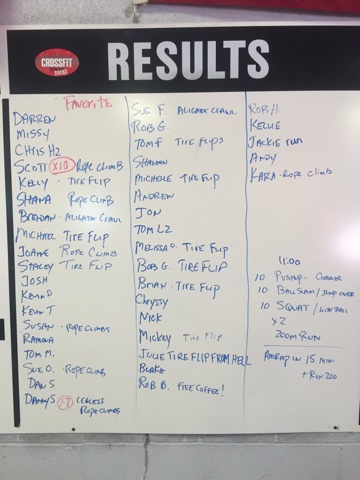 CROSSFIT
RESULTS
FAVORITE
DARREN
MISSY
CHRIS HZ
SCOTT X10 ROPE CLIMB
KELLY - TIRE FLIP
SHANA ROPE CLIMB
BRENDAN - ALIGATOR CRAWL
MICHAEL TIRE FLIP
JOANE ROPE CLIMB
STACEY TIRE FLIP
JOSH
KEVIN D
KEVIN T
SUSAN - ROPE CLIMBS
RAMONA
TOM M.
SUE O. - ROPE CLIMB
DAN S
DANNY S X7 LEGLESS
ROPE CLIMBS
SUE F. ALIGATOR CRAWL
ROB G.
TOM F TIRE FLIPS
SHANNON
MICHELE TIRE FLIP
ANDREW
JON
TOM LZ
MELISSA O. TIRE FLIP
BOB G. TIRE FLIP
BRIAN - TIRE FLIP
CHRYSSY
NICK
MICKEY TIRE FLIP
JULIE TIRE FLIP FROM HELL
BLAKE
ROB B. FREE COFFEE!
ROB H.
KELLIE
JACKIE RUN
ANDY
KARA - ROPE CLIMB
11:00
10 PUSHUP -
10 BALL SLAM / JUMP OVER
10 SQUAT /
x 2
200M RUN
AMRAP IN 15 MIN
+ RUN 200